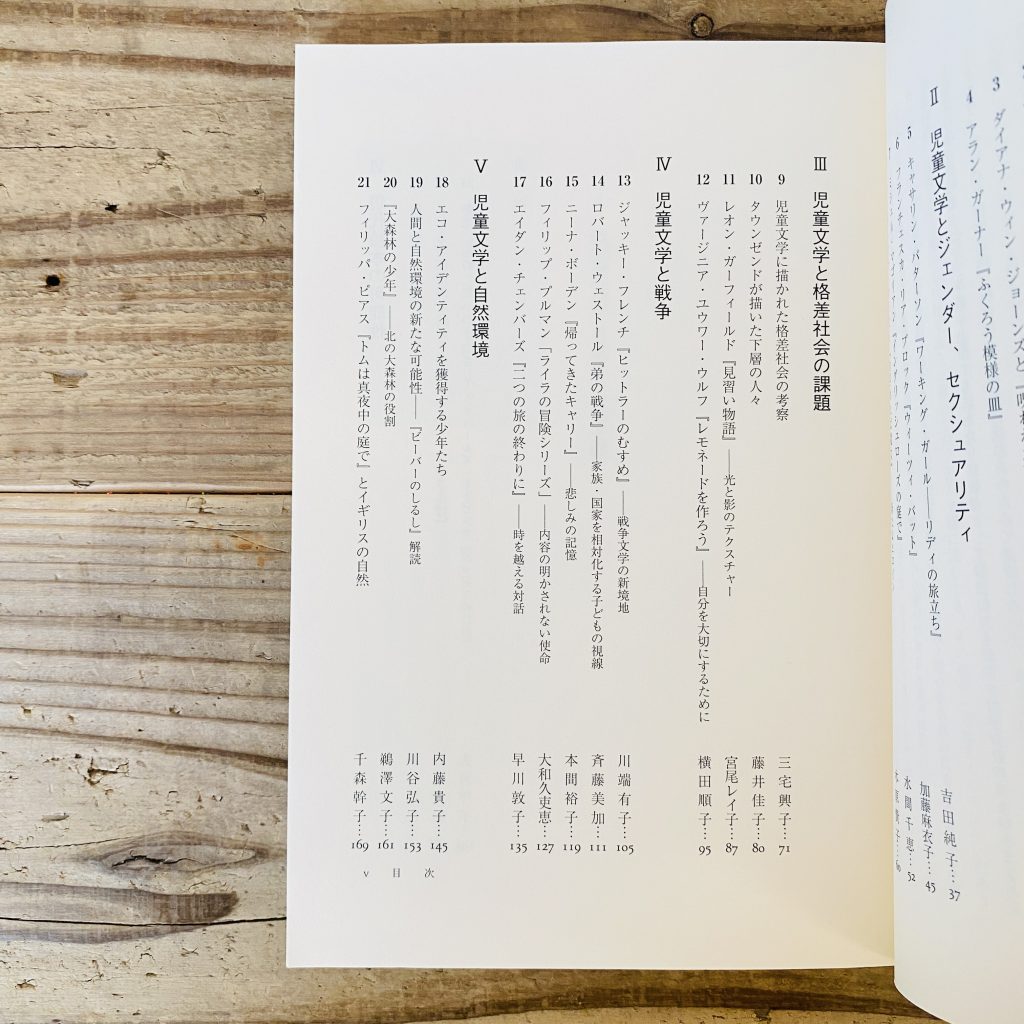 3 ダイアナ・ウィン・ジョーンズと
4 アラン・ガーナー『ふくろう模様の皿』
吉田純子…37
II 児童文学とジェンダー、セクシュアリティ
5 キャサリン・パターソン『ワーキング・ガール――リディの旅立ち』
加藤麻衣子…45
6 フランチェスカ・リア・ブロック『ウィーツィ・バット』
水間千恵…52
III 児童文学と格差社会の課題
9 児童文学に描かれた格差社会の考察 三宅興子…71
10 タウンゼンドが描いた下層の人々 藤井佳子…80
11 レオン・ガーフィールド『見習い物語』――光と影のテクスチャー 宮尾レイ子…87
12 ヴァージニア・ユウワー・ウルフ『レモネードを作ろう』――自分を大切にするために 横田順子…95
IV 児童文学と戦争
13 ジャッキー・フレンチ『ヒットラーのむすめ』――戦争文学の新境地 川端有子…105
14 ロバート・ウェストール『弟の戦争』――家族・国家を相対化する子どもの視線 斉藤美加…111
15 ニーナ・ボーデン『帰ってきたキャリー』――悲しみの記憶 本間裕子…119
16 フィリップ・プルマン「ライラの冒険シリーズ」――内容の明かされない使命 大和久吏恵…127
17 エイダン・チェンバーズ『二つの旅の終わりに』――時を越える対話 早川敦子…135
V 児童文学と自然環境
18 エコ・アイデンティティを獲得する少年たち 内藤貴子…145
19 人間と自然環境の新たな可能性――『ビーバーのしるし』解読 川谷弘子…153
20 『大森林の少年』――北の大森林の役割 鵜澤文子…161
21 フィリッパ・ピアス『トムは真夜中の庭で』とイギリスの自然 千森幹子…169
v 目次